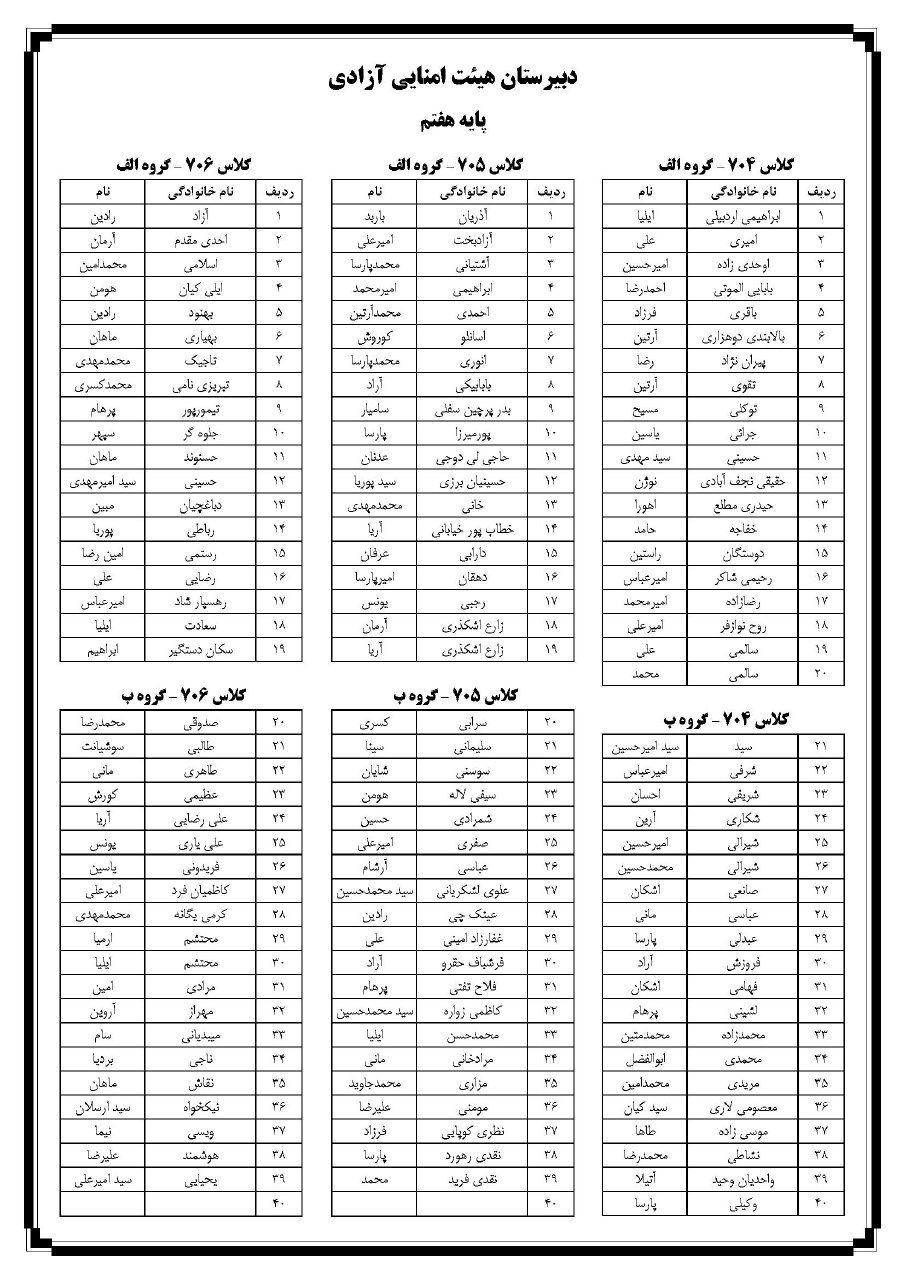 دبیرستان هیئت امنایی آزادی
پایه هفتم
کلاس ۷۰۴ - گروه الف
ردیف نام خانوادگی نام
۱ ابراهیمی اردبیلی ایلیا
۲ امیری علی
۳ اوحدی زاده امیرحسین
۴ بابایی الموتی احمدرضا
۵ باقری فرزاد
۶ بالابندی دوهزاری آرتین
۷ پیران نژاد رضا
۸ تقوی آرتین
۹ توکلی مسیح
۱۰ جرائی یاسین
۱۱ حسینی سید مهدی
۱۲ حقیقی نجف آبادی نوژن
۱۳ حیدری مطلع اهورا
۱۴ خفاجه حامد
۱۵ دوستگان راستین
۱۶ رحیمی شاکر امیرعباس
۱۷ رضازاده امیرمحمد
۱۸ روح نوازفر امیرعلی
۱۹ سالمی علی
۲۰ سالمی محمد
کلاس ۷۰۴ - گروه ب
۲۱ سید سید امیرحسین
۲۲ شرفی امیرعباس
۲۳ شریفی احسان
۲۴ شکاری آرین
۲۵ شیرالی امیرحسین
۲۶ شیرالی محمدحسین
۲۷ صانعی اشکان
۲۸ عباسی مانی
۲۹ عبدلی پارسا
۳۰ فروزش آراد
۳۱ فهامی اشکان
۳۲ لشینی پرهام
۳۳ محمدزاده محمدمتین
۳۴ محمدی ابوالفضل
۳۵ مریدی محمدامین
۳۶ معصومی لاری سید کیان
۳۷ موسی زاده طاها
۳۸ نشاطی محمدرضا
۳۹ واحدیان وحید آتیلا
۴۰ وکیلی پارسا
کلاس ۷۰۵ - گروه الف
ردیف نام خانوادگی نام
۱ آذریان باربد
۲ آزادبخت امیرعلی
۳ آشتیانی محمدپارسا
۴ ابراهیمی امیرمحمد
۵ احمدی محمدآرتین
۶ اسانلو کوروش
۷ انوری محمدپارسا
۸ بابابیکی آراد
۹ بدر پرچین سفلی سامیار
۱۰ پورمیرزا پارسا
۱۱ حاجی لی دوجی عدنان
۱۲ حسینیان برزی سید پوریا
۱۳ خانی محمدمهدی
۱۴ خطاب پور خیابانی آریا
۱۵ دارابی عرفان
۱۶ دهقان امیرپارسا
۱۷ رجبی یونس
۱۸ زارع اشکذری آرمان
۱۹ زارع اشکذری آریا
کلاس ۷۰۵ - گروه ب
۲۰ سرابی کسری
۲۱ سلیمانی سینا
۲۲ سوسنی شایان
۲۳ سیفی لاله هومن
۲۴ شمرادی حسین
۲۵ صفری امیرعلی
۲۶ عباسی آرشام
۲۷ علوی لشکریانی سید محمدحسین
۲۸ عینک چی رادین
۲۹ غفارزاد امینی علی
۳۰ فرشباف حقرو آراد
۳۱ فلاح تفتی پرهام
۳۲ کاظمی زواره سید محمدحسین
۳۳ محمدحسن ایلیا
۳۴ مرادخانی مانی
۳۵ مزاری محمدجاوید
۳۶ مومنی علیرضا
۳۷ نظری کوپایی فرزاد
۳۸ نقدی رهورد پارسا
۳۹ نقدی فرید محمد
۴۰
کلاس ۷۰۶ - گروه الف
ردیف نام خانوادگی نام
۱ آزاد رادین
۲ احدی مقدم آرمان
۳ اسلامی محمدامین
۴ ایلی کیان هومن
۵ بهنود رادین
۶ بهیاری ماهان
۷ تاجیک محمدمهدی
۸ تبریزی نامی محمدکسری
۹ تیمورپور پرهام
۱۰ جلوه گر سپهر
۱۱ حسنوند ماهان
۱۲ حسینی سید امیرمهدی
۱۳ دباغچیان مبین
۱۴ رباطی پوریا
۱۵ رستمی امین رضا
۱۶ رضایی علی
۱۷ رهسپار شاد امیرعباس
۱۸ سعادت ایلیا
۱۹ سکان دستگیر ابراهیم
کلاس ۷۰۶ - گروه ب
۲۰ صدوقی محمدرضا
۲۱ طالبی سوشیانت
۲۲ طاهری مانی
۲۳ عظیمی کورش
۲۴ علی رضایی آریا
۲۵ علی یاری یونس
۲۶ فریدونی یاسین
۲۷ کاظمیان فرد امیرعلی
۲۸ کرمی یگانه محمدمهدی
۲۹ محتشم ارمیا
۳۰ محتشم ایلیا
۳۱ مرادی امین
۳۲ مهراز آروین
۳۳ میبدیانی سام
۳۴ ناجی بردیا
۳۵ نقاش ماهان
۳۶ نیکخواه سید ارسلان
۳۷ ویسی نیما
۳۸ هوشمند علیرضا
۳۹ یحیایی سید امیرعلی
۴۰